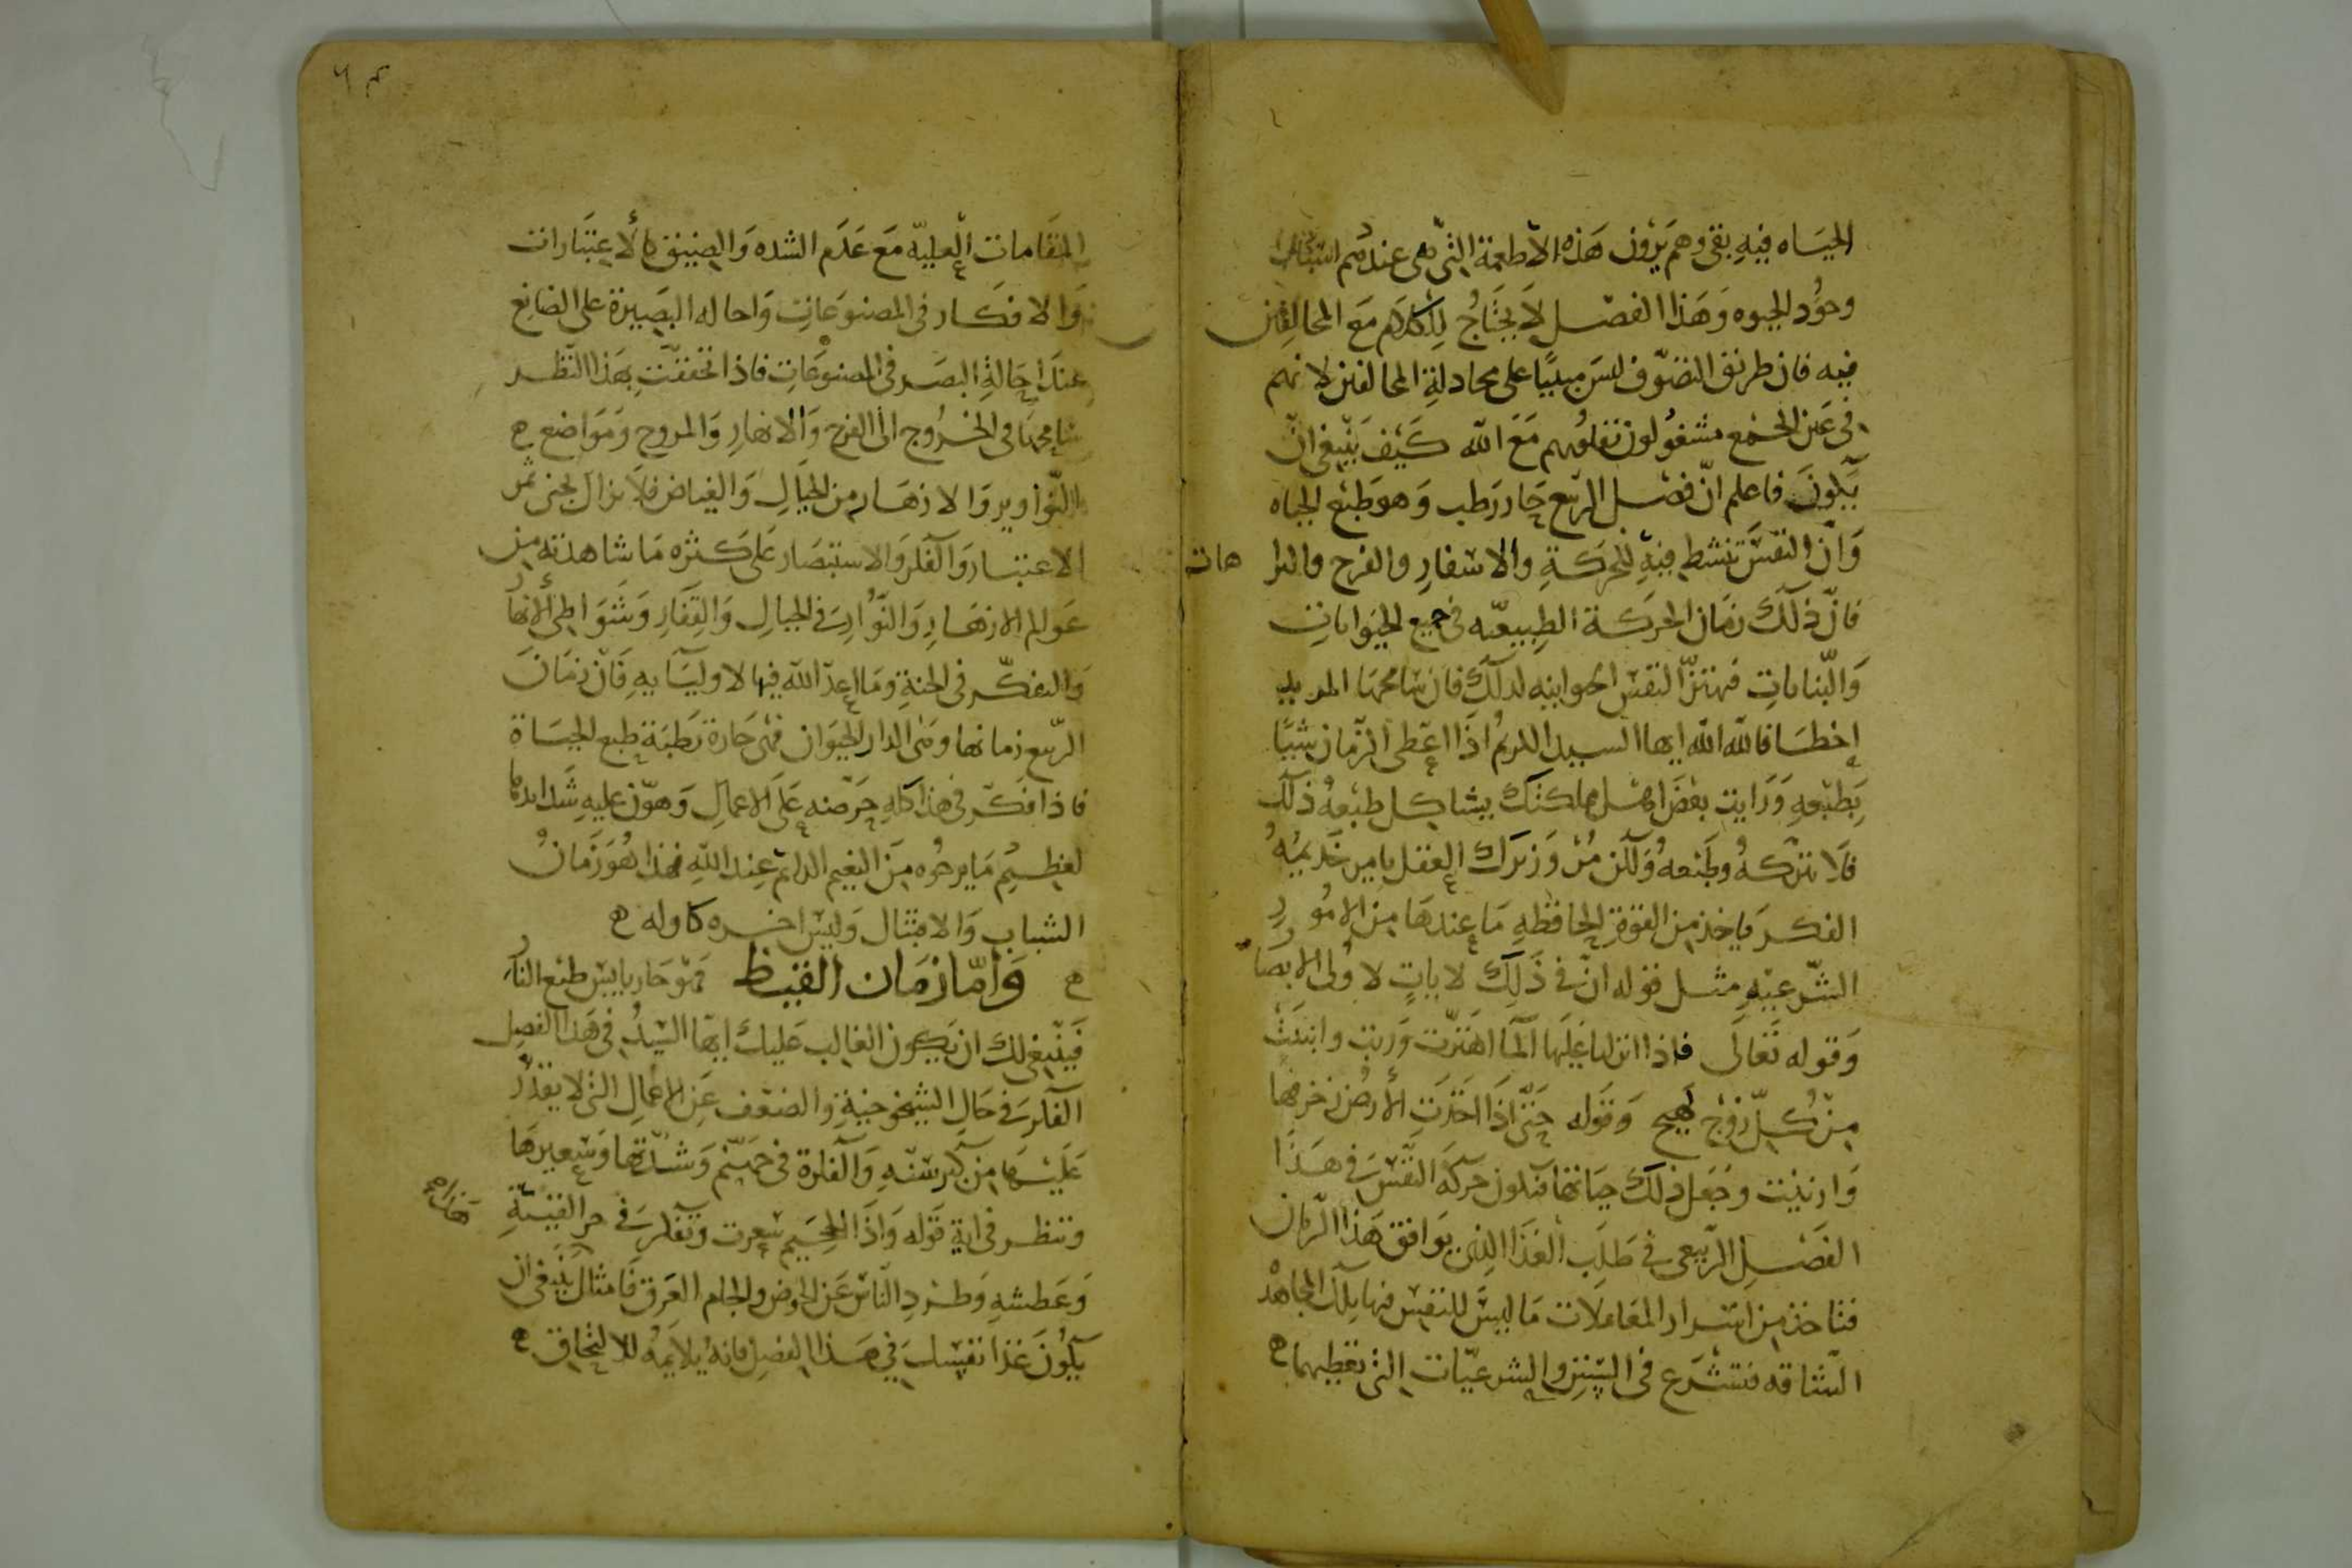 الحياه فيه بقى وهم يرون هذه الاطعمة التي هي عندهم
وجود الحيوه وهذا الفصل لا يحتاج لكلام مع المخالفين
فيه فان طريق التصوف ليس مبنيا على مجادلة المخالفين لانهم
في عين الجمع مشغولون بقلوبهم مع الله كيف ينبغي ان
يكون فاعلم ان فصل الربيع حار رطب وهو طبع الحياه
وان النفس تنشط فيه للحركة والاسفار والفرح هات
فان ذلك زمان الحركة الطبيعيه في جميع الحيوانات
والنباتات فتهتز النفس الحيوانيه لذلك فان سامحها المريد
اخطا فالله الله ايها السيد الكريم اذا اعطى الزمان شيا
بطبعه ورايت بعض اهل مملكتك يشاكل طبعه ذلك
فلا تتركه وطبعه ولكن مر وزيرك العقل يامر خديمه
الفكر ياخذ من القوة الحافظه ما عندها من الامور
الشرعيه مثل قوله ان في ذلك لايات لاولى الابصار
وقوله تعالى فاذا انزلنا عليها الما اهتزت وربت وانبتت
من كل زوج بهيج وقوله حتى اذا اخذت الارض زخرفها
وازينت وجعل ذلك حياتها فتكون حركة النفس في هذا
الفصل الربيعي في طلب الغذا الذي يوافق هذا الزمان
فتاخذ من اسرار المعاملات ما ليس للنفس فيها تلك المجاهده
الشاقه فتشرع في السنن والشرعيات التي تعطيها
المقامات العليه مع عدم الشده والضيق كالاعتبارات
والافكار في المصنوعات واحاله البصيرة على الصانع
عند احالة البصر في المصنوعات فاذا تحققت بهذا النظر
سامحها في الخروج الى الفرح والانهار والمروج ومواضع
النواوير والازهار من الجبال والغياض فلا يزال يجنى ثمر
الاعتبار والفكر والاستبصار على كثره ما شاهدته من
عوالم الازهار والنوار في الجبال والقفار وشواطى الانهار
والتفكر في الجنة وما اعد الله فيها لاوليايه فان زمان
الربيع زمانها وهى الدار الحيوان فهى حارة رطبة طبع الحياة
فاذا فكر في هذا كله حرضه على الاعمال وهون عليه شدايدها
لعظيم ما يرجوه من النعيم الدائم عند الله فهذا هو زمان
الشباب والامتثال وليس اخره كاوله
واما زمان القيظ فهو حار يابس طبع النار
فينبغي لك ان يكون الغالب عليك ايها السيد في هذا الفصل
الفكر في حال الشيخوخية والضعف عن الاعمال التي لا يقدر
عليها من كبر سنه والفكرة في جهنم وشدتها وسعيرها
وتنظر في اية قوله واذا الجحيم سعرت وتفكر في حر القيامة
وعطشه وطرد الناس عن الحوض والجام العرق فامثال ينبغي ان
يكون غذا نفسك في هذا الفصل فانه يلايمه للالتحاق